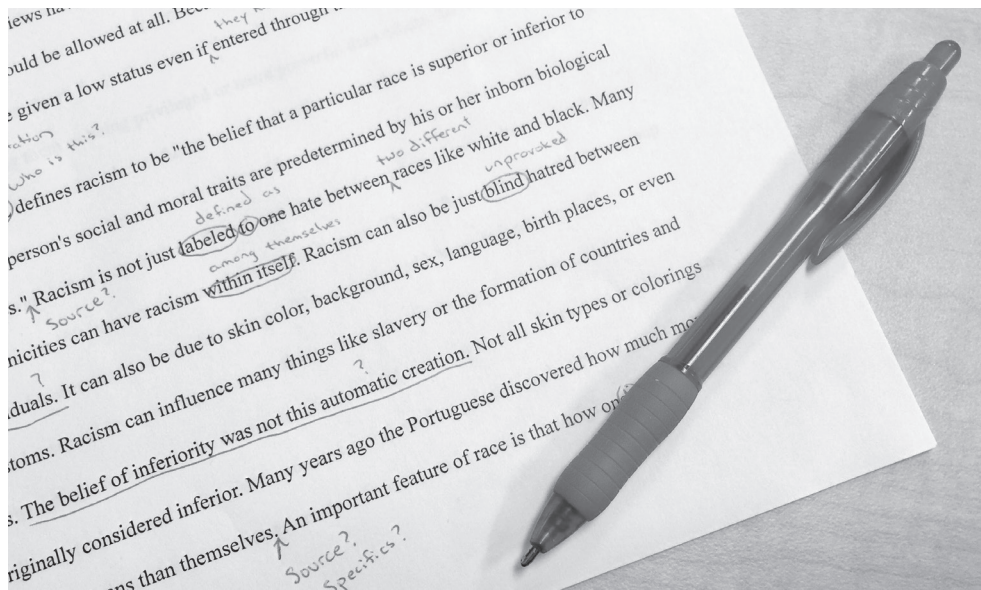 iews ha
they
ould be allowed at all. Bec
e given a low status even if entered through
ration
who is this?
defines racism to be "the belief that a particular race is superior or inferior to
two different
unprovoked
person's social and moral traits are predetermined by his or her inborn biological
defined as
s." Racism is not just labeled to one hate between races like white and black. Many
Source?
among themselves
nicities can have racism within itself. Racism can also be just blind hatred between
?
duals. It can also be due to skin color, background, sex, language, birth places, or even
stoms. Racism can influence many things like slavery or the formation of countries and
?
s. The belief of inferiority was not this automatic creation. Not all skin types or colorings
riginally considered inferior. Many years ago the Portuguese discovered how much mo
ns than themselves. An important feature of race is that how on
Source?
Specifics?